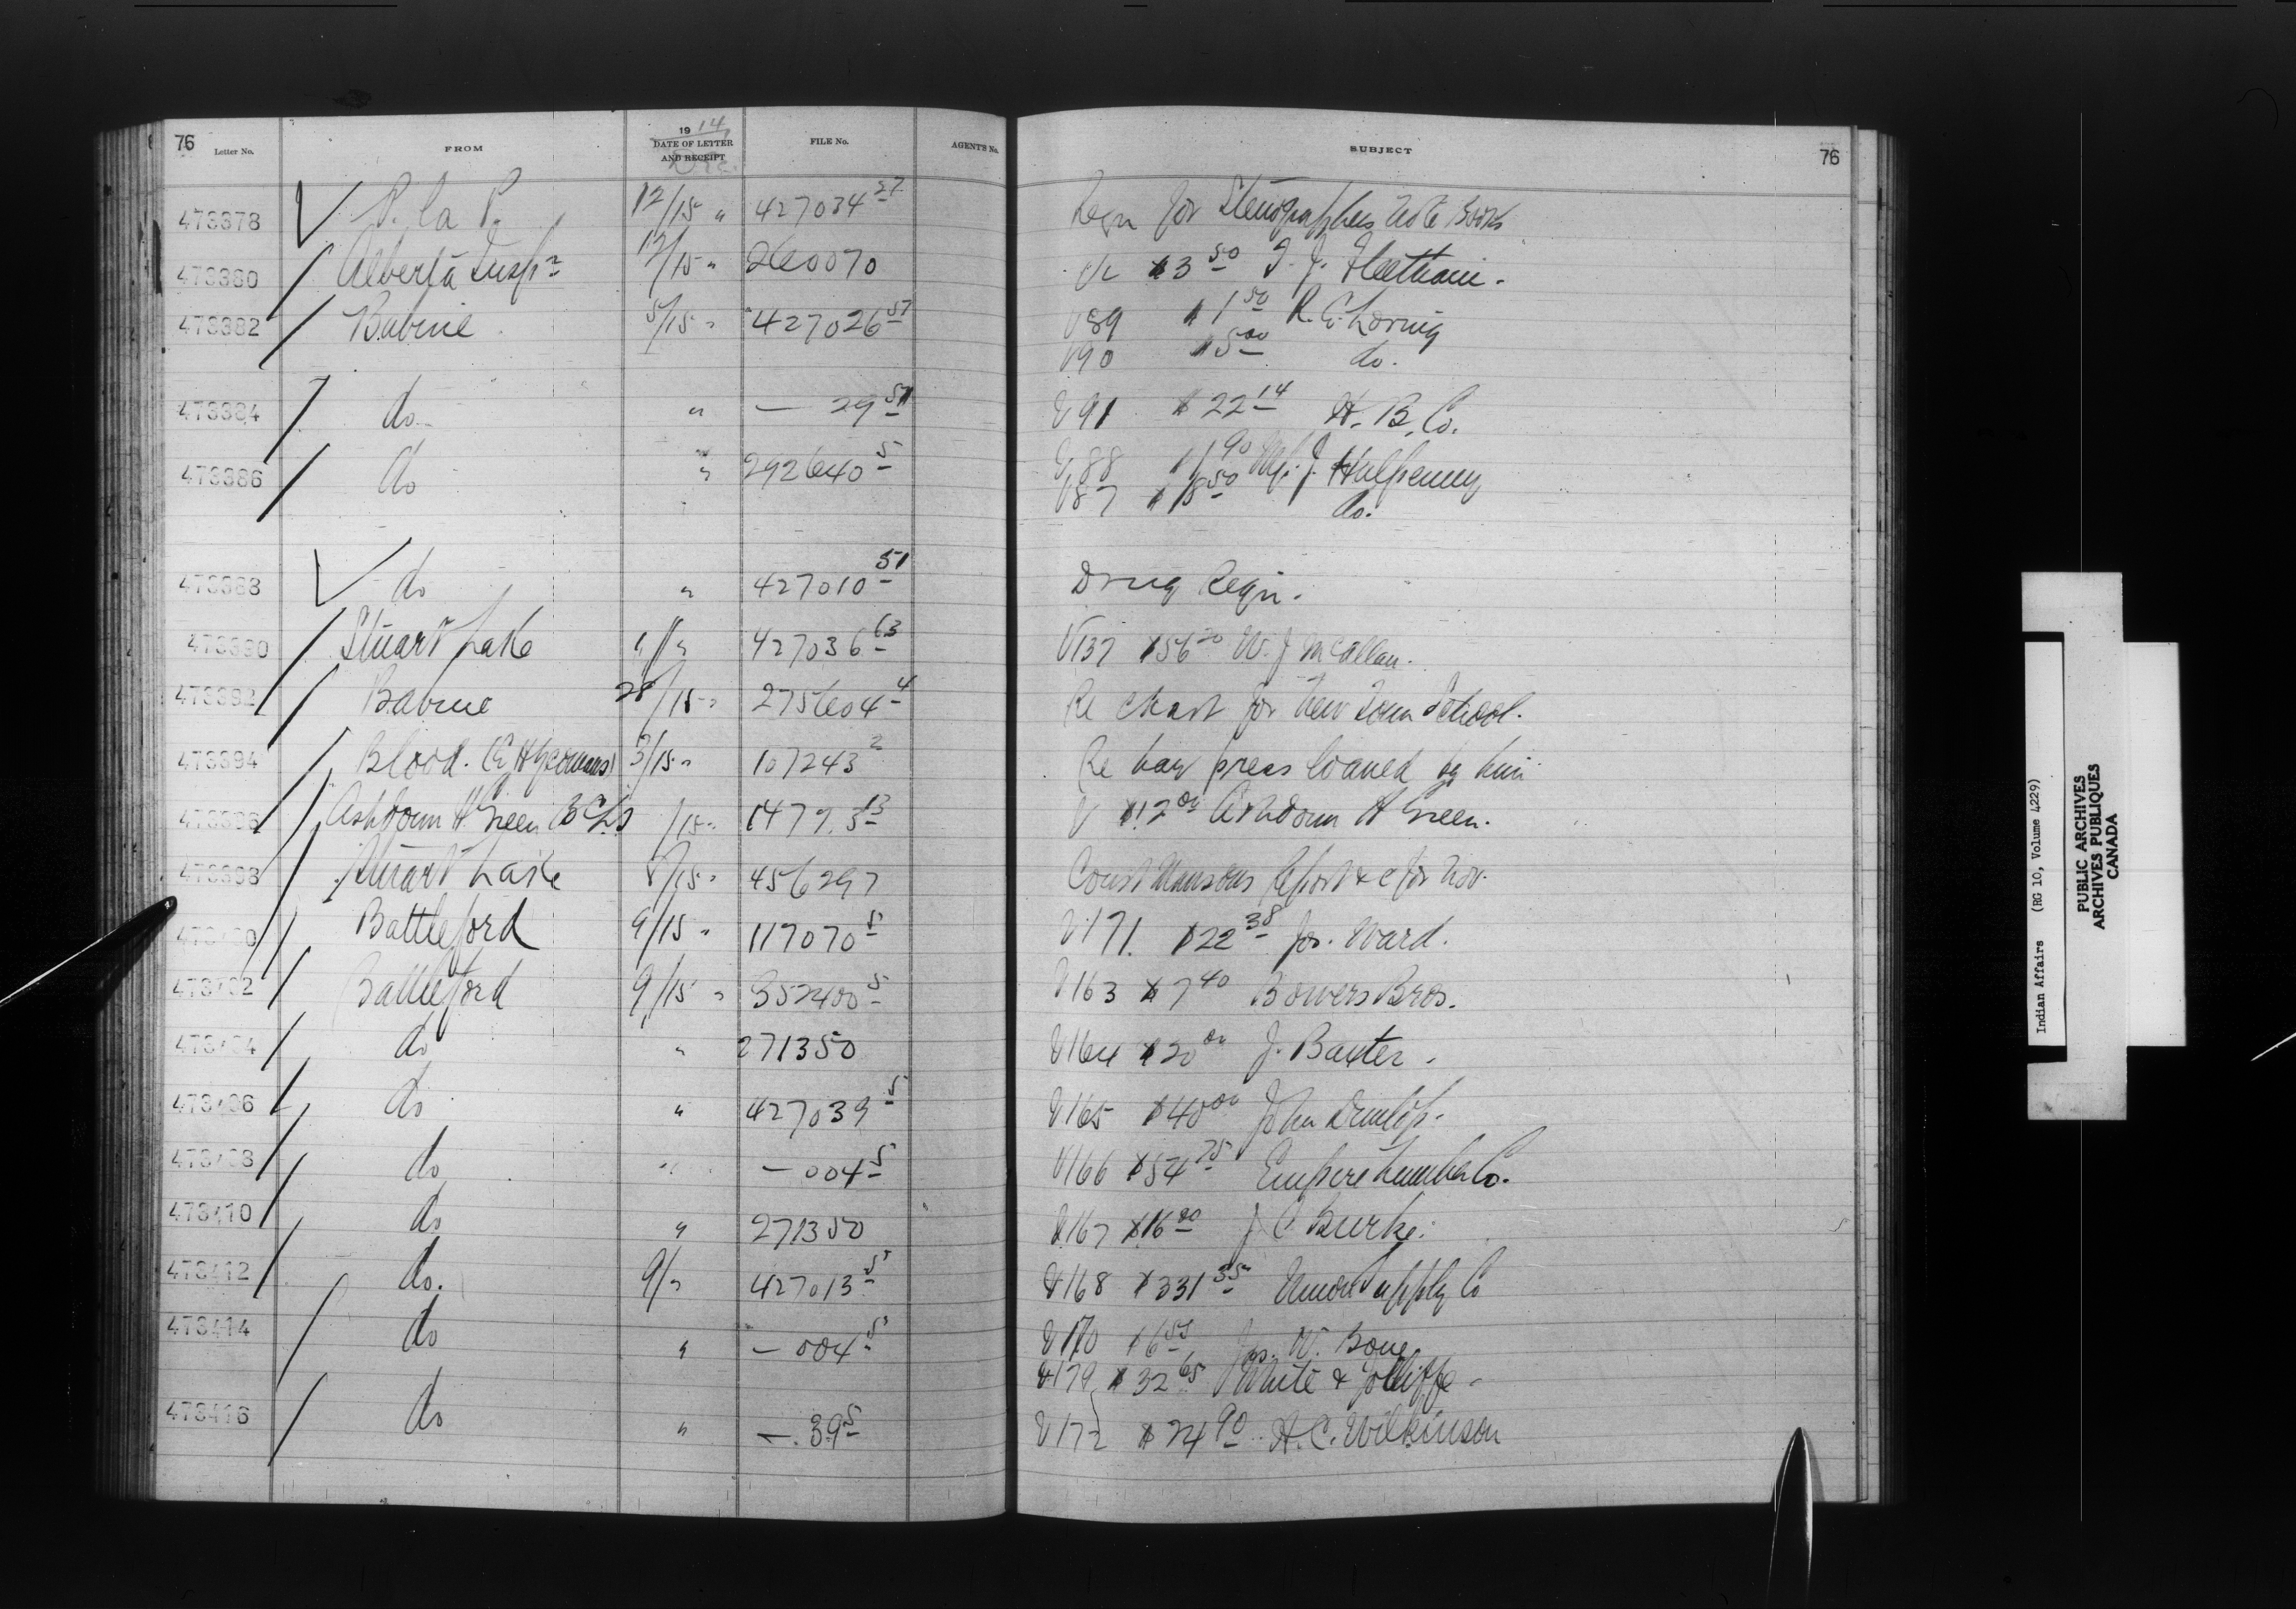 76 Letter No. FROM 1914 DATE OF LETTER AND RECEIPT Dec. FILE No. AGENT'S No. SUBJECT 76
473378 P. la P. 12/15 " 427034 27 Reqn for Stenographers Note Books
473380 Alberta Inspn 12/15 " 260070 Vc $3 50 J. J. Fleetham.
473382 Babine 5/15 " 427026 51 V89 $1 50 R. E. Loring
V90 $5 00 do.
473384 do " — 29 51 V91 $22 14 H. B. Co.
473386 do " 292640 5 V88 90 J. Halpenny
V87 $18 50 do.
473388 do " 427010 51 Drug Reqn.
473390 Stuart Lake " 427036 63 V137 $56 20 W. J. McAllan.
473392 Babine 28/15 " 275604 4 Re chart for New Town School.
473394 Blood. (E H Yeomans) 3/15 " 107243 2 Re hay press loaned by him
473396 Ashdown H Green BCLS /15 " 13 V $12 00 Ashdown H Green.
473398 Stuart Lake 8/15 " 456297 Const Mansons Report &c for Nov.
473400 Battleford 9/15 " 117070 5 V171. $22 38 Jos. Ward.
473402 Battleford 9/15 " 352400 5 V163 $7 40 Bowers Bros.
473404 do " 271350 V164 $20 00 J. Baxter.
473406 do " 427039 5 V165 $40 00 John Dunlop.
473408 do " — 004 5 V166 $54 75 Empire Lumber Co.
473410 do " 271350 V167 $16 80 J C Burke.
473412 do. 9/" 427013 5 V168 $331 35 Union Supply Co
473414 do " — 004 5 V170 $6 55 Jos. W. Bone
V179 $32 65 White & Jolliffe.
473416 do " — 39 5 V172 $24 90 A. C. Wilkinson
Indian Affairs (RG 10, Volume 4229)
PUBLIC ARCHIVES
ARCHIVES PUBLIQUES
CANADA